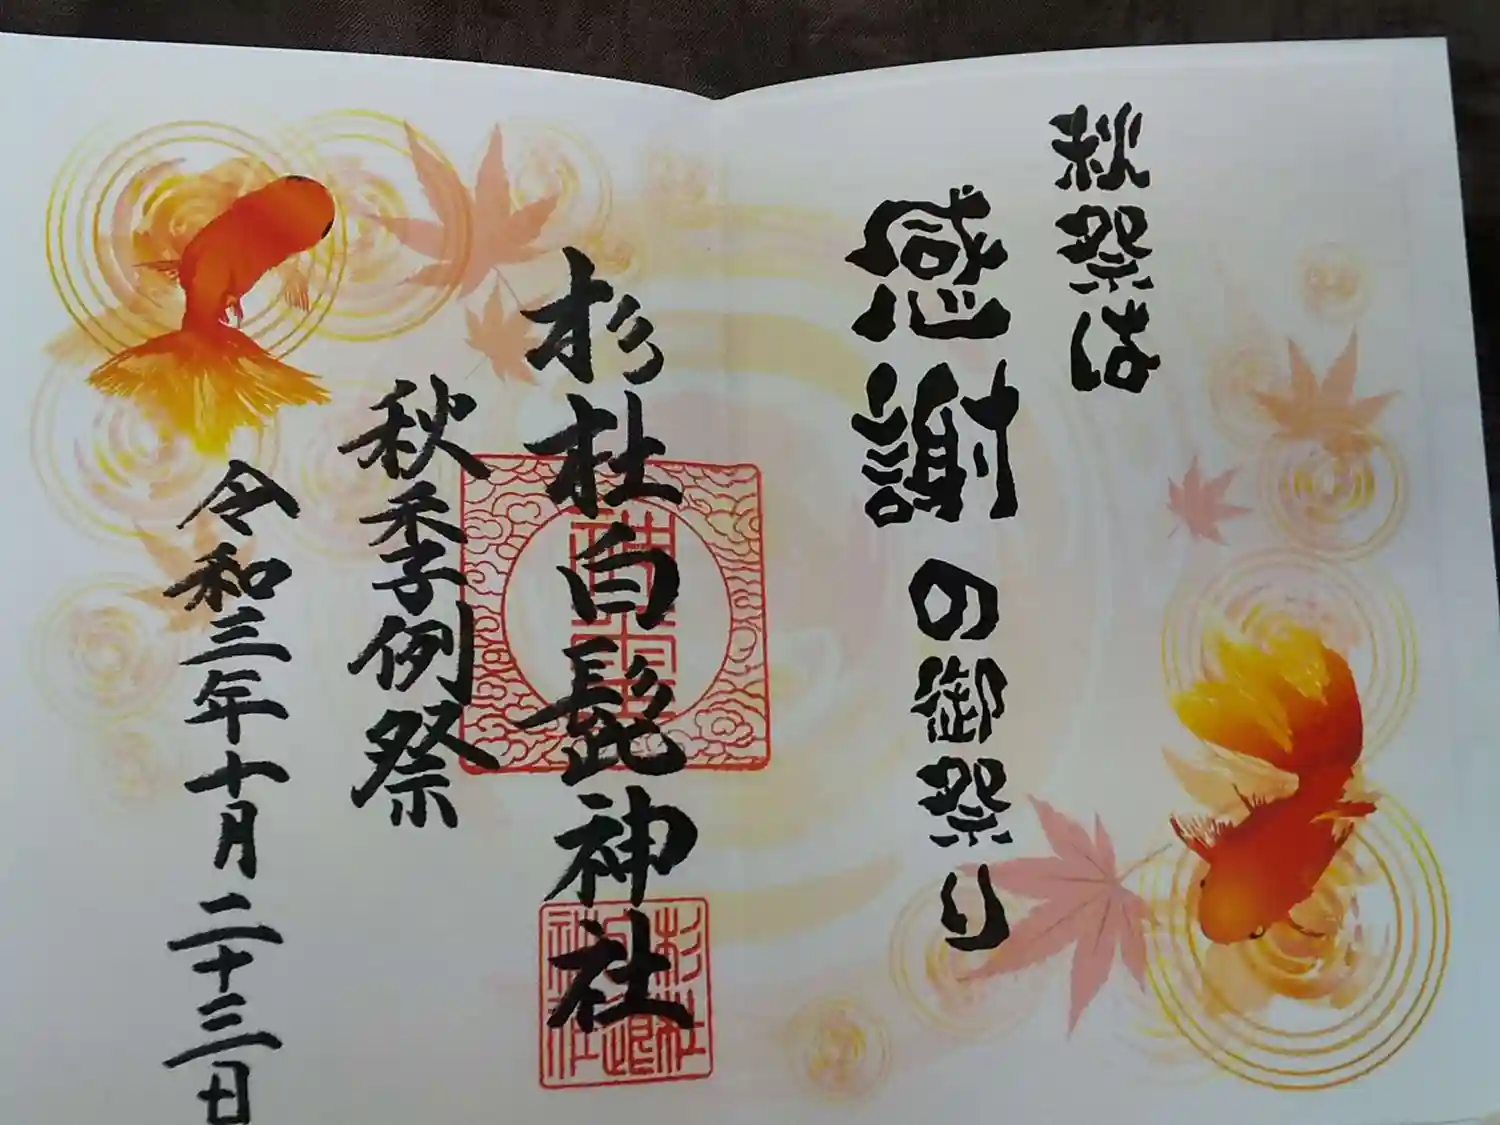 秋祭祝
感謝の御祭り
杉杜白髭神社
秋季例祭
令和三年十月二十三日